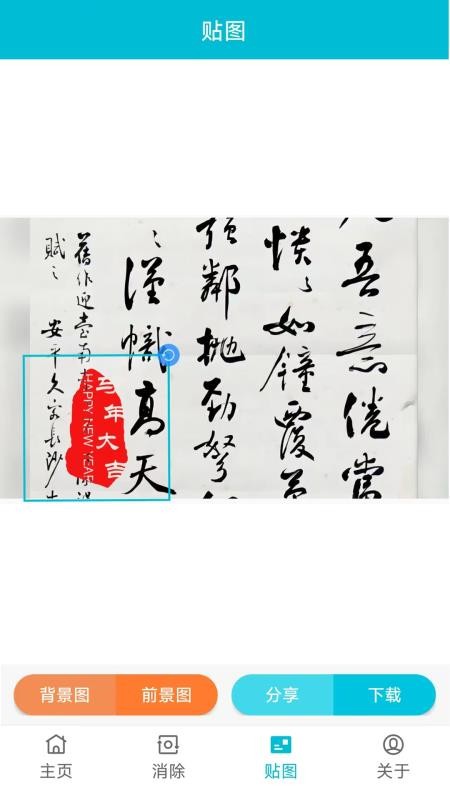 贴图
吾意倦當
如鐘覆
强鄰抛勁弩
漢幟高天
舊作迎臺南
賦之
安平久客長沙
马年大吉
HAPPY NEW YEAR
背景图
前景图
分享
下载
主页
消除
贴图
关于